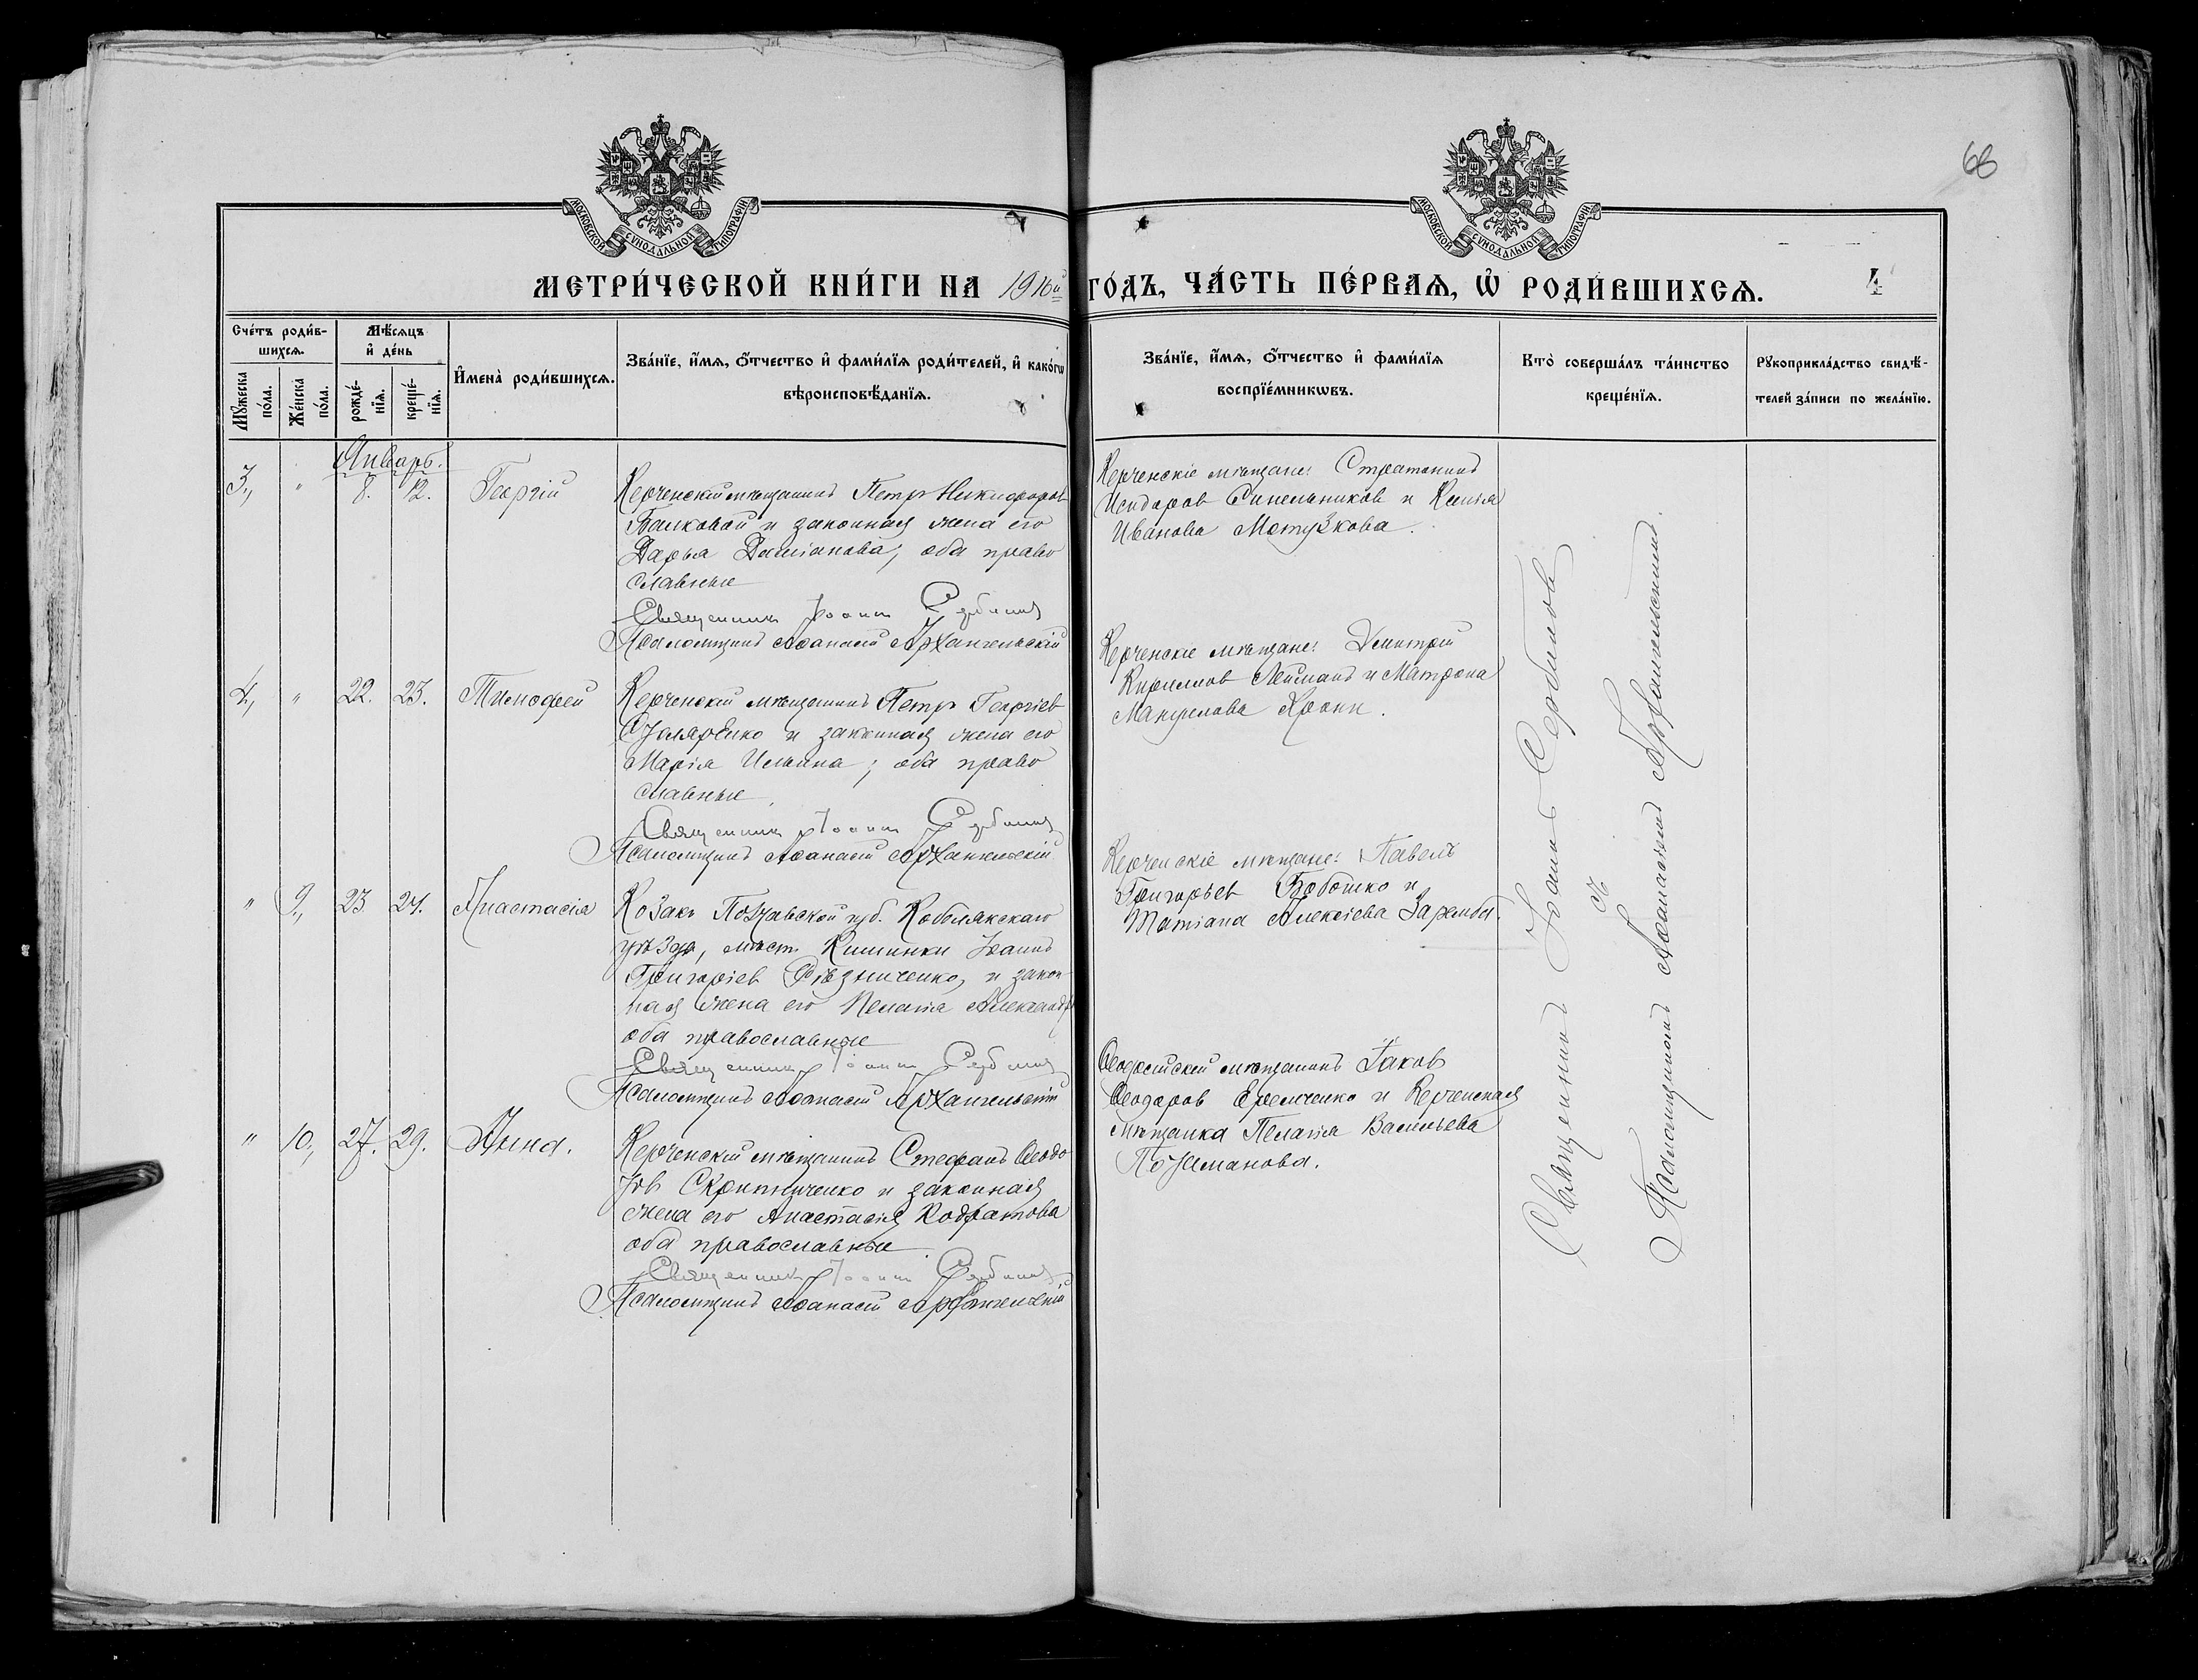 68
МОСКОВСКОЙ СѴНОДАЛЬНОЙ ТИПОГРАФІИ
МОСКОВСКОЙ СѴНОДАЛЬНОЙ ТИПОГРАФІИ
МЕТРИ́ЧЕСКОЙ КНИ́ГИ НА 1916й ГО́ДЪ, ЧА́СТЬ ПЕ́РВАѦ, Ѡ҆ РОДИ́ВШИХСѦ. 4
Сче́тъ роди́в-
шихсѧ.
Мѣ́сѧцъ
и҆ де́нь
Мꙋ́жеска по́ла.
Же́нска по́ла.
рожде́-
нїѧ.
креще́-
нїѧ.
И҆мена̀ роди́вшихсѧ.
Зва́нїе, и҆́мѧ, ѻ҆́тчество и҆ фами́лїѧ роди́телей, и҆ како́гѡ
вѣроисповѣ́данїѧ.
Зва́нїе, и҆́мѧ, ѻ҆́тчество и҆ фами́лїѧ
воспрїе́мникѡвъ.
Кто̀ соверша́лъ та́инство
креще́нїѧ.
Рꙋкоприкла́дство свидѣ́-
телей за́писи по жела́нїю.
Январь.
3, " 8. 12. Георгій
Керченскій мѣщанинъ Петр Никифоров
Балковой и законная жена его
Дарья Даміанова; оба право
славные
Священник Іоанн Сербинов
Псаломщикъ Аѳанасій Архангельскій
Керченскіе мѣщане: Стратоникъ
Исидоров Синельников и Ксенія
Иванова Мотузкова.
4, " 22. 23. Тимофей
Керченскій мѣщанинъ Петр Георгіев
Столяренко и законная жена его
Марія Ильина; оба право
славные
Священник Іоанн Сербинов
Псаломщикъ Аѳанасій Архангельскій
Керченскіе мѣщане: Дмитрій
Кириллов Лейманъ и Матрона
Мануилова
" 9, 23 24. Анастасія
Козакъ Полтавской губ. Кобелякскаго
уѣзда, мѣст. Кишинки Іоаннъ
Григоріев Рѣзниченко, и закон
ная жена его Пелагія Александр
оба православные
Священник Іоанн Сербинов
Псаломщикъ Аѳанасій Архангельскій
Керченскіе мѣщане: Павелъ
Григорьев Бобошко и
Татіана Алексіева Заремба.
" 10, 27. 29. Анна.
Керченскій мѣщанинъ Стефанъ Ѳеодо
ров Скрипниченко и законная
жена его Анастасія Кодратова
оба православные
Священник Іоанн Сербинов
Псаломщикъ Аѳанасій Архангельскій
Ѳеодосійскій мѣщанинъ Іаков
Ѳеодоров Еремченко и Керченская
мѣщанка Пелагія Васильева
Священникъ Іоаннъ Сербинов
съ
Псаломщикомъ Аѳанасіемъ Архангельскимъ.